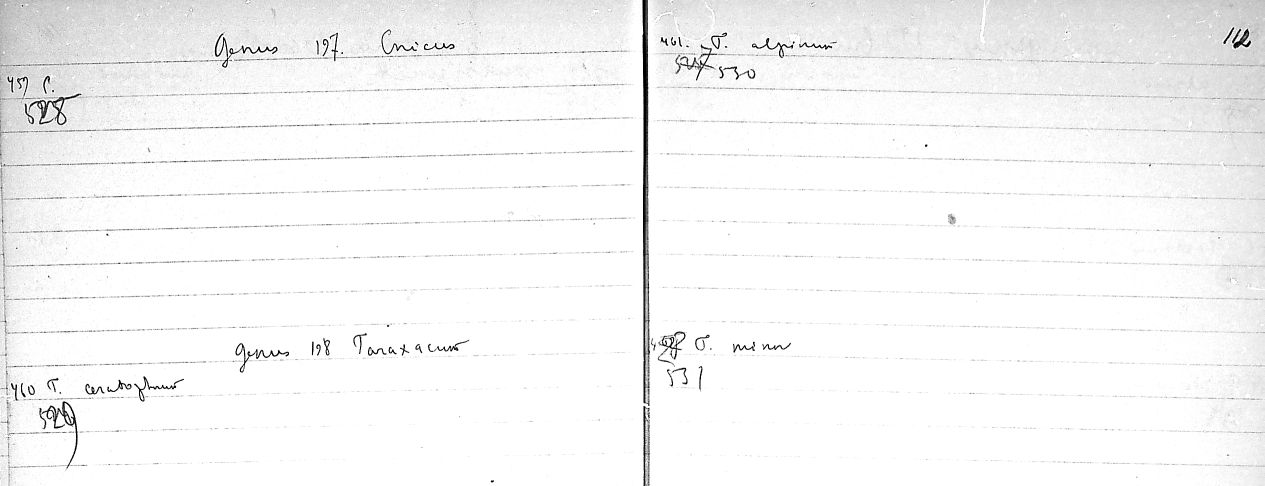 Genus 197. Cnicus
459 C.
528
Genus 198 Taraxacum
460 T. ceratophorum
529
112
461. T. alpinum
530
T. minor
531